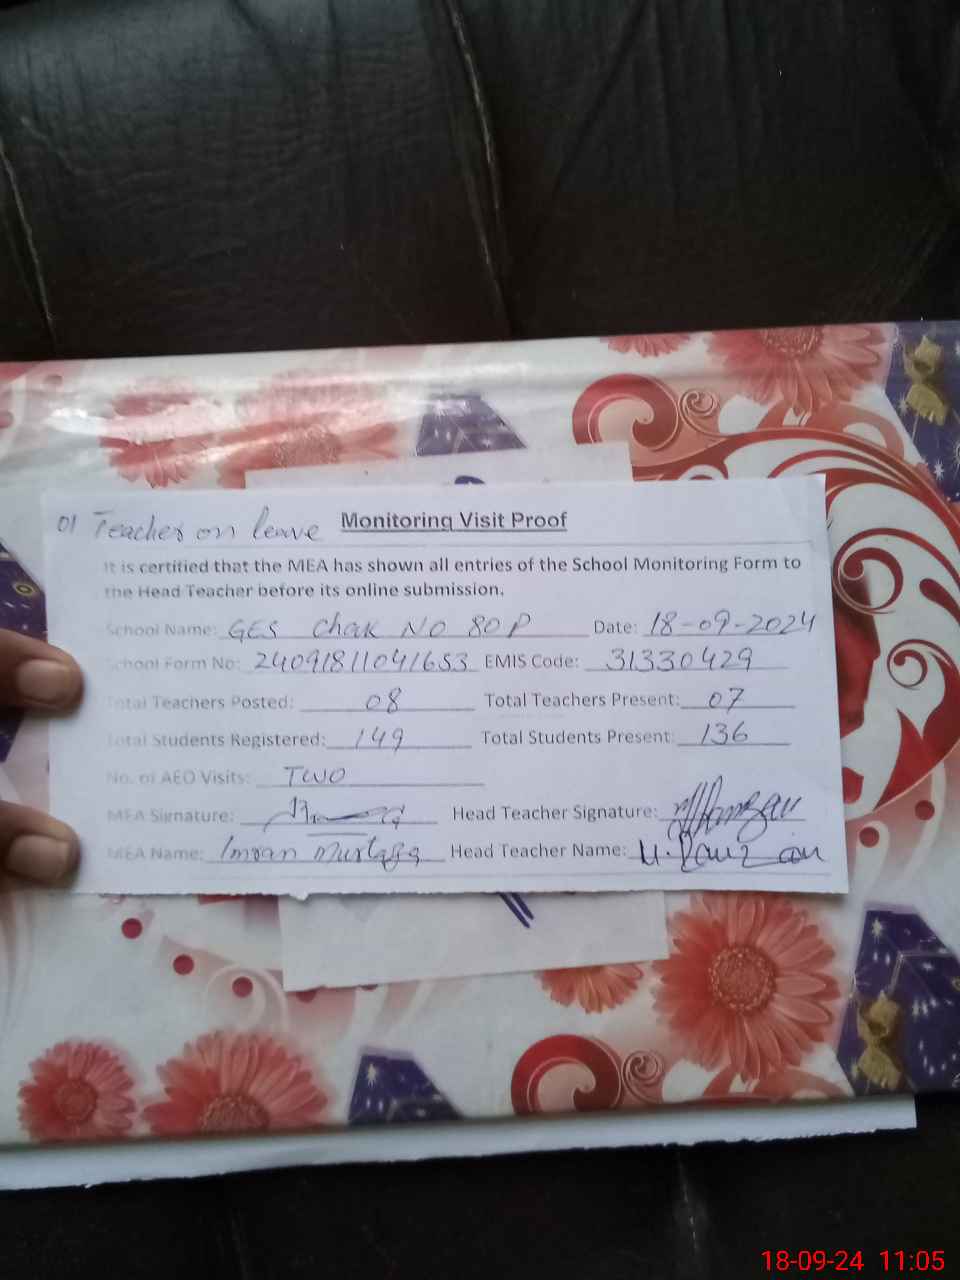 01 Teacher on leave Monitoring Visit Proof
It is certified that the MEA has shown all entries of the School Monitoring Form to
the Head Teacher before its online submission.
School Name: GES Chak NO 80P Date: 18-09-2024
School Form No: 24091811041653 EMIS Code: 31330429
Total Teachers Posted: 08 Total Teachers Present: 07
Total Students Registered: 149 Total Students Present: 136
No. of AEO Visits: TWO
MEA Signature: Head Teacher Signature:
MEA Name: Imran Murtaza Head Teacher Name: M. Ramzan
18-09-24 11:05